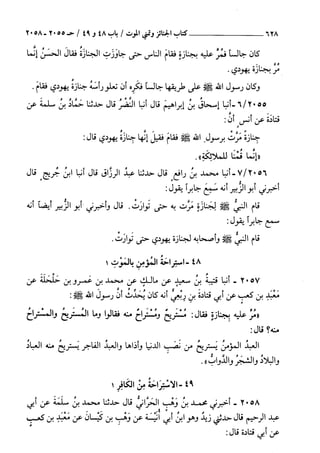 ٦٢٨ كتاب الجنائز وتمني الموت / باب ٤٨ و ٤٩ / حـ ٢٠٥٥ - ٢٠٥٨
كان جالساً فَمُرَّ عليه بجنازةٍ فقامَ الناس حتى جاوَزَتِ الجنازةُ فقالَ الحسَنُ إنَّما
مُرَّ بجنازة يهودي.
وكان رسول الله ﷺ على طريقها جالساً فكَرِه أن تعلو رأسَهُ جنازةُ يهودي فقامَ.
٦/٢٠٥٥ - أنبا إسحاقُ بنُ إبراهيمَ قال أنبا النَّضْرُ قال حدثنا حَمَّادُ بنُ سلمةَ عن
قتادةَ عن أنسٍ أنَّ:
جنازةً مَرَّتْ برسولِ الله ﷺ فقامَ فقيلَ إنَّها جنازةُ يهودي قال:
«إنَّما قُمْنا للملائِكَةِ».
٧/٢٠٥٦ - أنبا محمد بنُ رافعٍ قال حدثنا عبدُ الرزاقِ قال أنبا ابنُ جُريجٍ قال
أخبرني أبو الزُّبير أنه سَمِعَ جابراً يقول:
قام النبيُّ ﷺ لِجنازةٍ مَرَّت به حتى تَوارَتْ. قال وأخبرني أبو الزُّبير أيضاً أنه
سمع جابراً يقول:
قام النبيُّ ﷺ وأصحابه لجنازة يهودي حتى تَوارَتْ.
٤٨ - استراحةُ المُؤمنِ بالمَوْتِ ١
٢٠٥٧ - أنبا قتيبةُ بنُ سعيدٍ عن مالكٍ عن محمد بنِ عمرو بن حَلْحَلَةَ عن
مَعْبَدِ بن كعبٍ عن أبي قتادةَ بن رِبْعِيٍّ أنه كان يُحَدِّثُ أنَّ رسولَ الله ﷺ:
«مُرَّ عليه بجنازةٍ فقال: مُسْتَريحٌ ومُسْتَراحٌ منه فقالوا وما المُستريحُ والمُستراحُ
منه؟ قال:
العبدُ المؤمنُ يَستريحُ من نَصَبِ الدنيا وأذاها والعبدُ الفاجر يَستريحُ منه العبادُ
والبلادُ والشجَرُ والدَّوابُّ».
٤٩ - الاستراحةُ مِنَ الكافِرِ ١
٢٠٥٨ - أخبرني محمد بنُ وَهْبٍ الحَرَّانيُّ قال حدثنا محمد بنُ سَلَمَةَ عن أبي
عبد الرحيم قال حدثني زيدٌ وهو ابنُ أبي أُنَيْسَةَ عن وَهْبِ بن كَيْسانَ عن مَعْبَدِ بن كعبٍ
عن أبي قتادة قال: